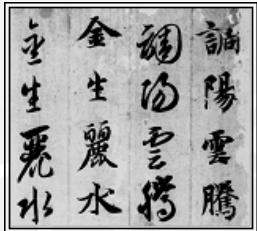 調陽雲騰
調陽雲騰
金生麗水
金生麗水